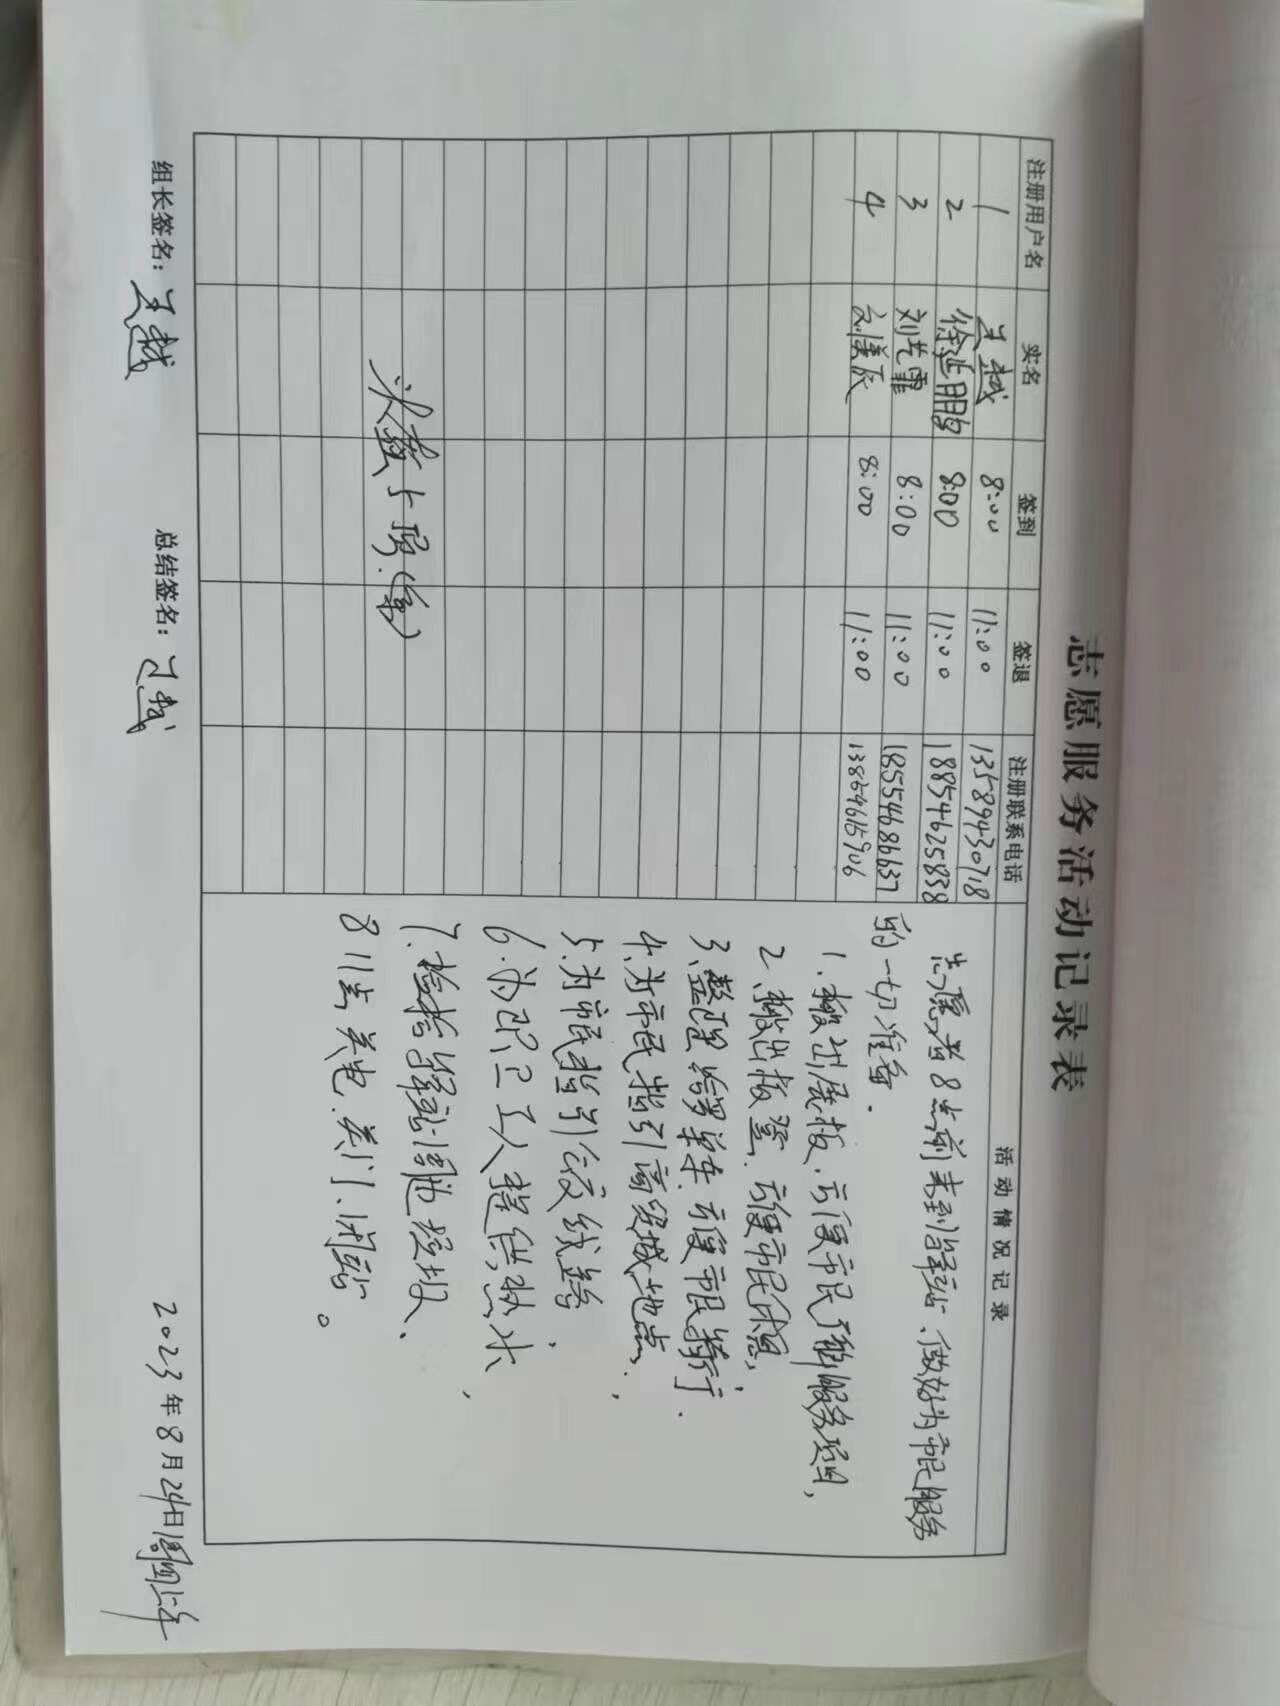 志愿服务活动记录表
注册用户名 实名 签到 签退 注册联系电话 活动情况记录
1 8:00 11:00 13589430718
2 徐延鹏 8:00 11:00 18854625838
3 刘芷霏 8:00 11:00 18554686637
4 刘美辰 8:00 11:00
志愿者8点前来到驿站、做好为市民服务
的一切准备.
1.搬出展板.方便市民了解服务项目,
2.搬出板凳.方便市民休息,
3.整理共享单车.方便市民骑行.
4.为市民指引高贤城地点,
5.为市民指引公交线路,
6.为环卫工人提供热水,
7.捡拾驿站周边垃圾、
8 11点关电.关门、闭站。
组长签名: 总结签名: 2023年8月24日周四上午